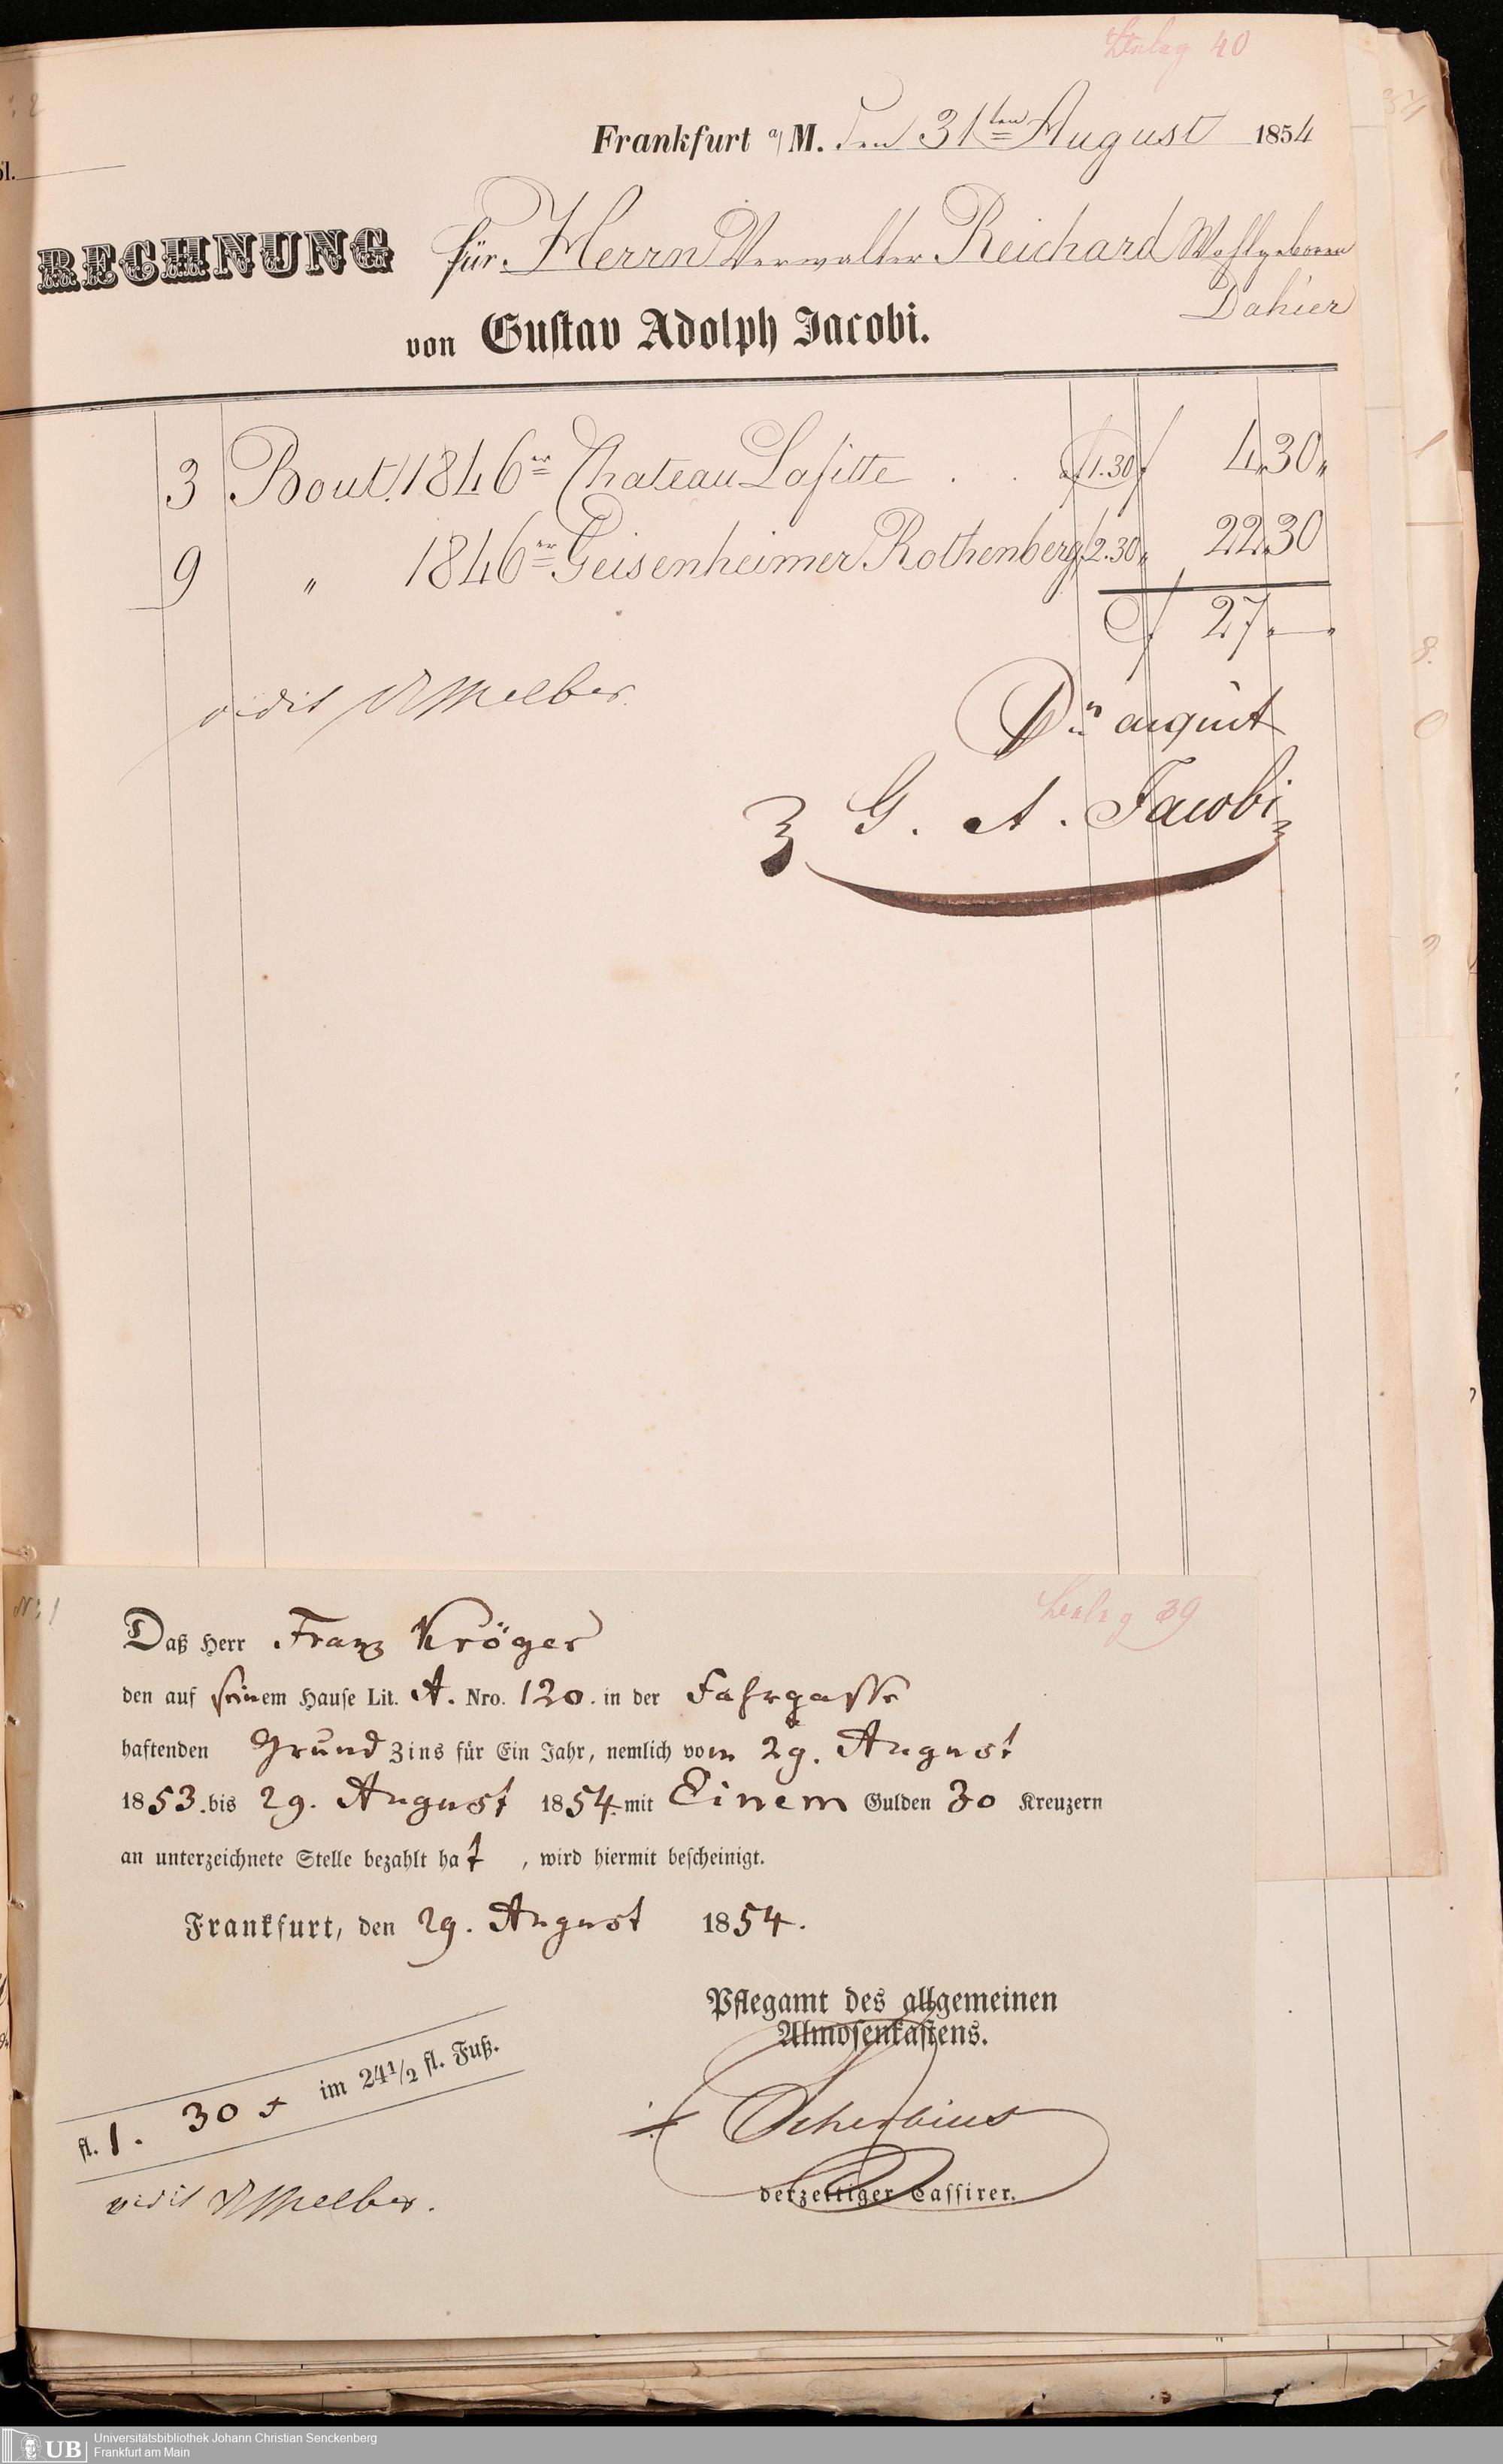 Beleg 40
Frankfurt a/M. den 31ten August 1854
RECHNUNG für Herrn Verwalter Reichard Wohlgeboren
Dahier
von Guſtav Adolph Jacobi.
3 Bout. 1846er Chateau Lafitte . . af 1.30 f 4.30„
9 „ 1846er Geisenheimer Rothenberg f 2.30„ 22.30
f 27.—.
vidit Melber.
Dn aquit
G. A. Jacobi
Beleg 39
Daß Herr Franz Kröger
den auf ſeinem Hauſe Lit. A. Nro. 120. in der Fahrgasse
haftenden Grund Zins für Ein Jahr, nemlich vom 29. August
1853. bis 29. August 1854 mit Einem Gulden 30 Kreuzern
an unterzeichnete Stelle bezahlt hat , wird hiermit beſcheinigt.
Frankfurt, den 29. August 1854.
Pflegamt des allgemeinen
Almoſenkaſtens.
fl. 1. 30 x im 24½ fl. Fuß.
Scherbius
derzeitiger Caſſirer.
vidit Melber.
UB Universitätsbibliothek Johann Christian Senckenberg
Frankfurt am Main